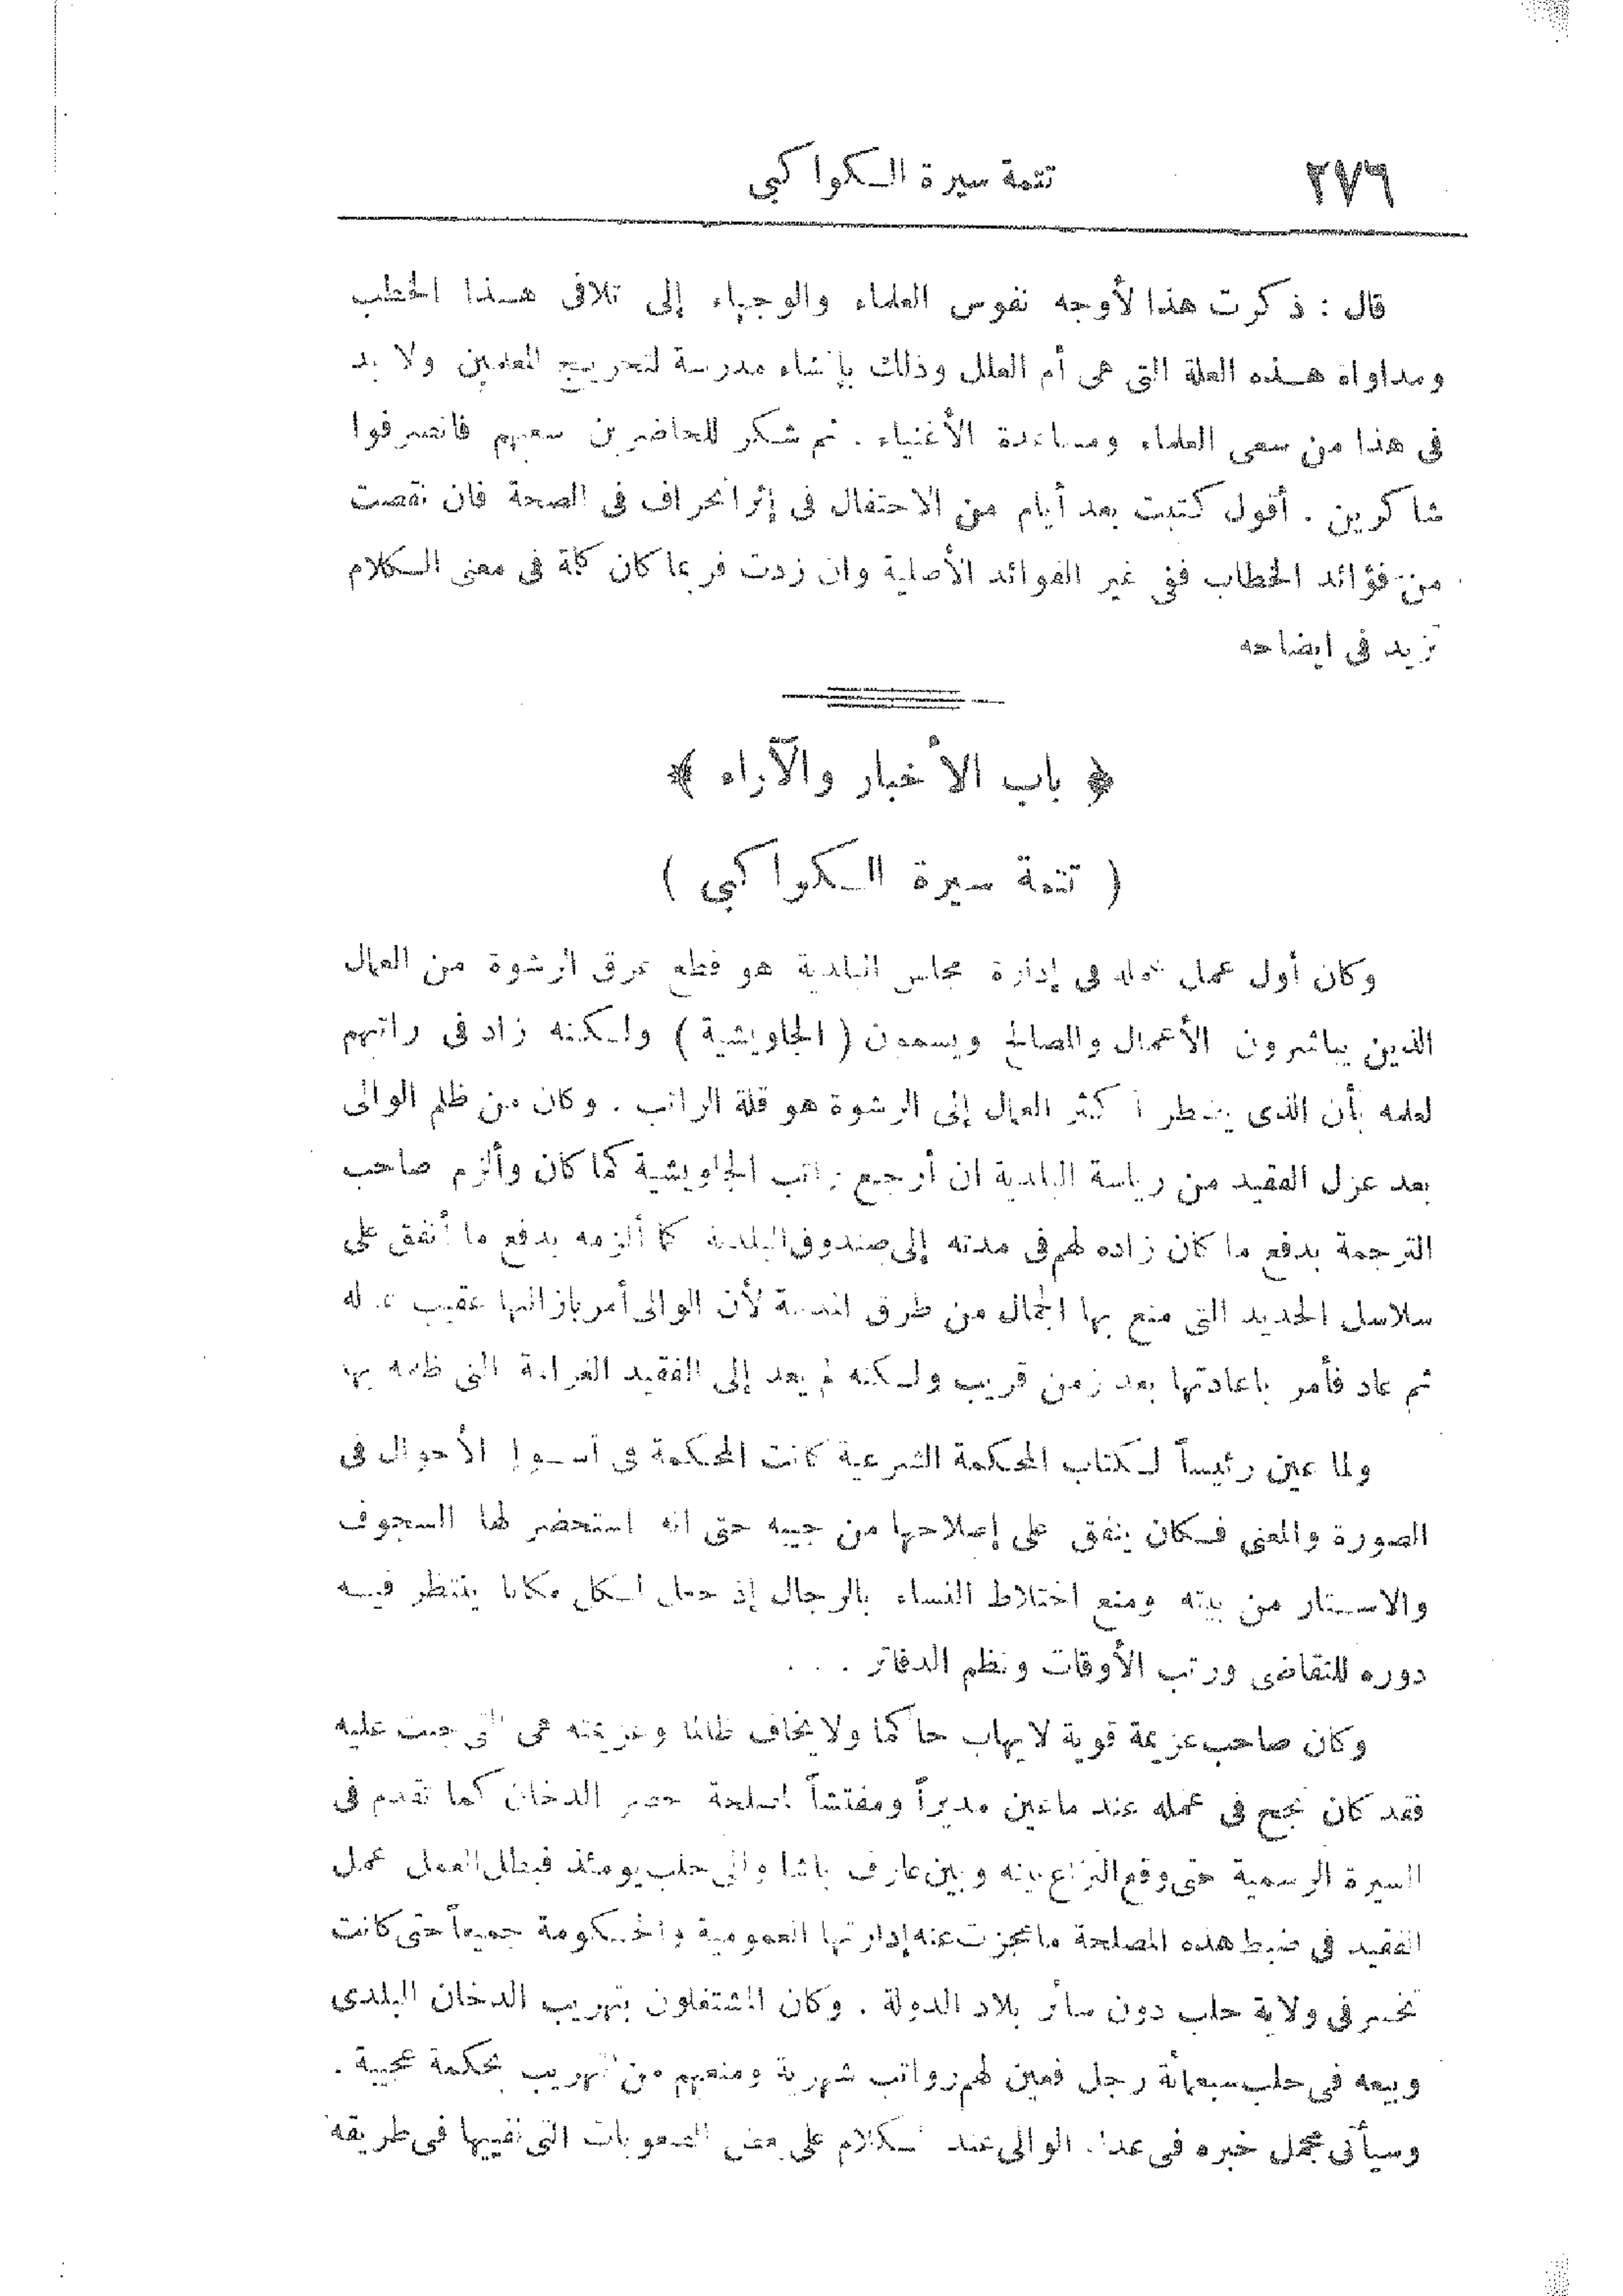 ٢٧٦
تتمة سيرة الكواكبي
قال : ذكرت هذا لأوجه نفوس العلماء والوجهاء إلى تلافى هذا الخطب
ومداواة هذه العلة التى هى أم العلل وذلك بإنشاء مدرسة لتخريج المعلمين ولا بد
فى هذا من سعى العلماء ومساعدة الأغنياء . ثم شكر للحاضرين سعيهم فانصرفوا
شاكرين . أقول كتبت بعد أيام من الاحتفال فى إثر انحراف فى الصحة فان نقصت
من فوائد الخطاب ففى غير الفوائد الأصلية وان زدت فربما كان كلمة فى معنى الكلام
تزيد فى ايضاحه
﴿ باب الأخبار والآراء ﴾
( تتمة سيرة الكواكبي )
وكان أول عمل عمله فى إدارة مجلس البلدية هو قطع عرق الرشوة من العمال
الذين يباشرون الأعمال والمصالح ويسمون ( الجاويشية ) ولكنه زاد فى راتبهم
لعلمه بأن الذى يضطر أكثر العمال إلى الرشوة هو قلة الراتب . وكان من ظلم الوالى
بعد عزل الفقيد من رياسة البلدية ان أرجع راتب الجاويشية كما كان وألزم صاحب
الترجمة بدفع ما كان زاده لهم فى مدته إلى صندوق البلدية كما ألزمه بدفع ما أنفق على
سلاسل الحديد التى منع بها الجمال من طرق المدينة لأن الوالى أمر بازالتها عقيب عزله
ثم عاد فأمر باعادتها بعد زمن قريب ولكنه لم يعد إلى الفقيد الغرامة التى ظلمه بها
ولما عين رئيساً لكتاب المحكمة الشرعية كانت المحكمة فى أسوإ الأحوال فى
الصورة والمعنى فكان ينفق على إصلاحها من جيبه حتى انه استحضر لها السجوف
والاستار من بيته ومنع اختلاط النساء بالرجال إذ جعل لكل مكانا ينتظر فيه
دوره للتقاضى ورتب الأوقات ونظم الدفاتر . . .
وكان صاحب عزيمة قوية لا يهاب حاكما ولا يخاف ظالما وعزيمته هى التى جنت عليه
فقد كان نجح فى عمله عند ما عين مديراً ومفتشاً لمصلحة حصر الدخان كما تقدم فى
السيرة الرسمية حتى وقع النزاع بينه وبين عارف باشا والى حلب يومئذ فبطل العمل عمل
الفقيد فى ضبط هذه المصلحة ما عجزت عنه إدارتها العمومية والحكومة جميعاً حتى كانت
تخسر فى ولاية حلب دون سائر بلاد الدولة . وكان المشتغلون بتهريب الدخان البلدى
وبيعه فى حلب سبعمائة رجل فعين لهم رواتب شهرية ومنعهم من التهريب بحكمة عجيبة .
وسيأتى مجمل خبره فى عداء الوالى عند الكلام على بعض الصعوبات التى لقيها فى طريقه